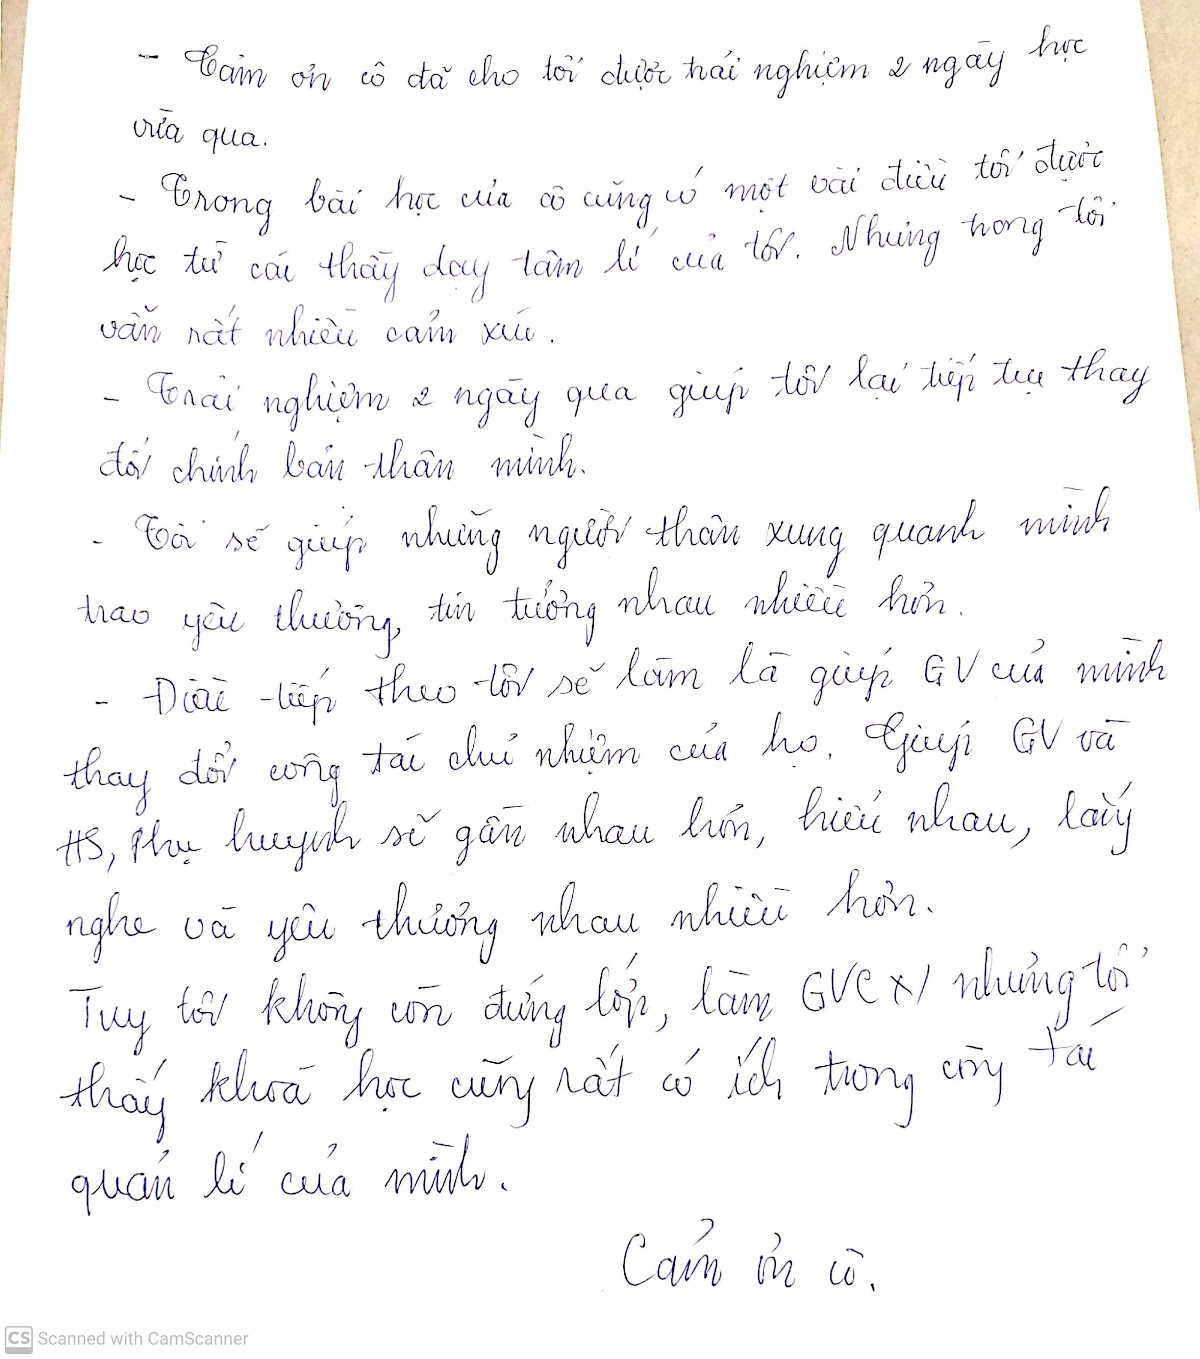 - Cảm ơn cô đã cho tôi được trải nghiệm 2 ngày học
vừa qua.
- Trong bài học của cô cũng có một vài điều tôi được
học từ các thầy dạy tâm lí của tôi. Nhưng trong tôi
vẫn rất nhiều cảm xúc.
- Trải nghiệm 2 ngày qua giúp tôi lại tiếp tục thay
đổi chính bản thân mình.
- Tôi sẽ giúp những người thân xung quanh mình
trao yêu thương, tin tưởng nhau nhiều hơn.
- Điều tiếp theo tôi sẽ làm là giúp GV của mình
thay đổi công tác chủ nhiệm của họ. Giúp GV và
HS, Phụ huynh sẽ gần nhau hơn, hiểu nhau, lắng
nghe và yêu thương nhau nhiều hơn.
Tuy tôi không còn đứng lớp, làm GVCN nhưng tôi
thấy khoá học cũng rất có ích trong công tác
quản lí của mình.
Cảm ơn cô.
CS Scanned with CamScanner